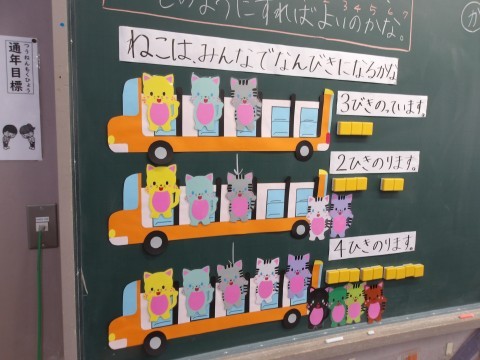 このようにすればよいのかな。
ねこは、みんなでなんびきになるかな
3びきのっています。
2ひきのります。
4ひきのります。
通年目標